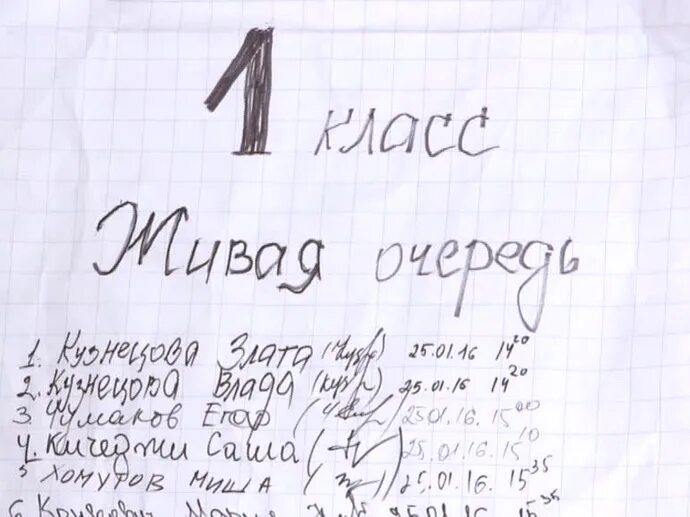 1 класс
Живая очередь
1. Кузнецова Злата 25.01.16 14 20
2. Кузнецова Влада 25.01.16 14 20
3. Чумаков Егор 25.01.16. 15 00
4. Кичеджи Саша 25.01.16. 15 10
5 Хомуров Миша 25.01.16. 15 35
6 25.01.16 15 35